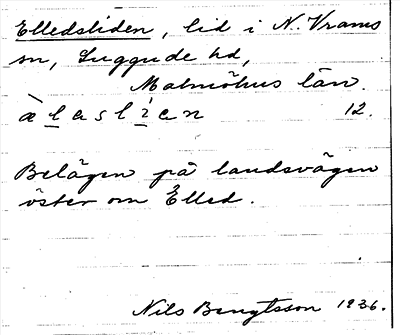 Elledsliden, lid i N. Vrams
sn, Luggude hd,
Malmöhus län.
æ̀ l a s l í̱ e n 12.
Belägen på landsvägen
öster om Elled.
Nils Bengtsson 1936.